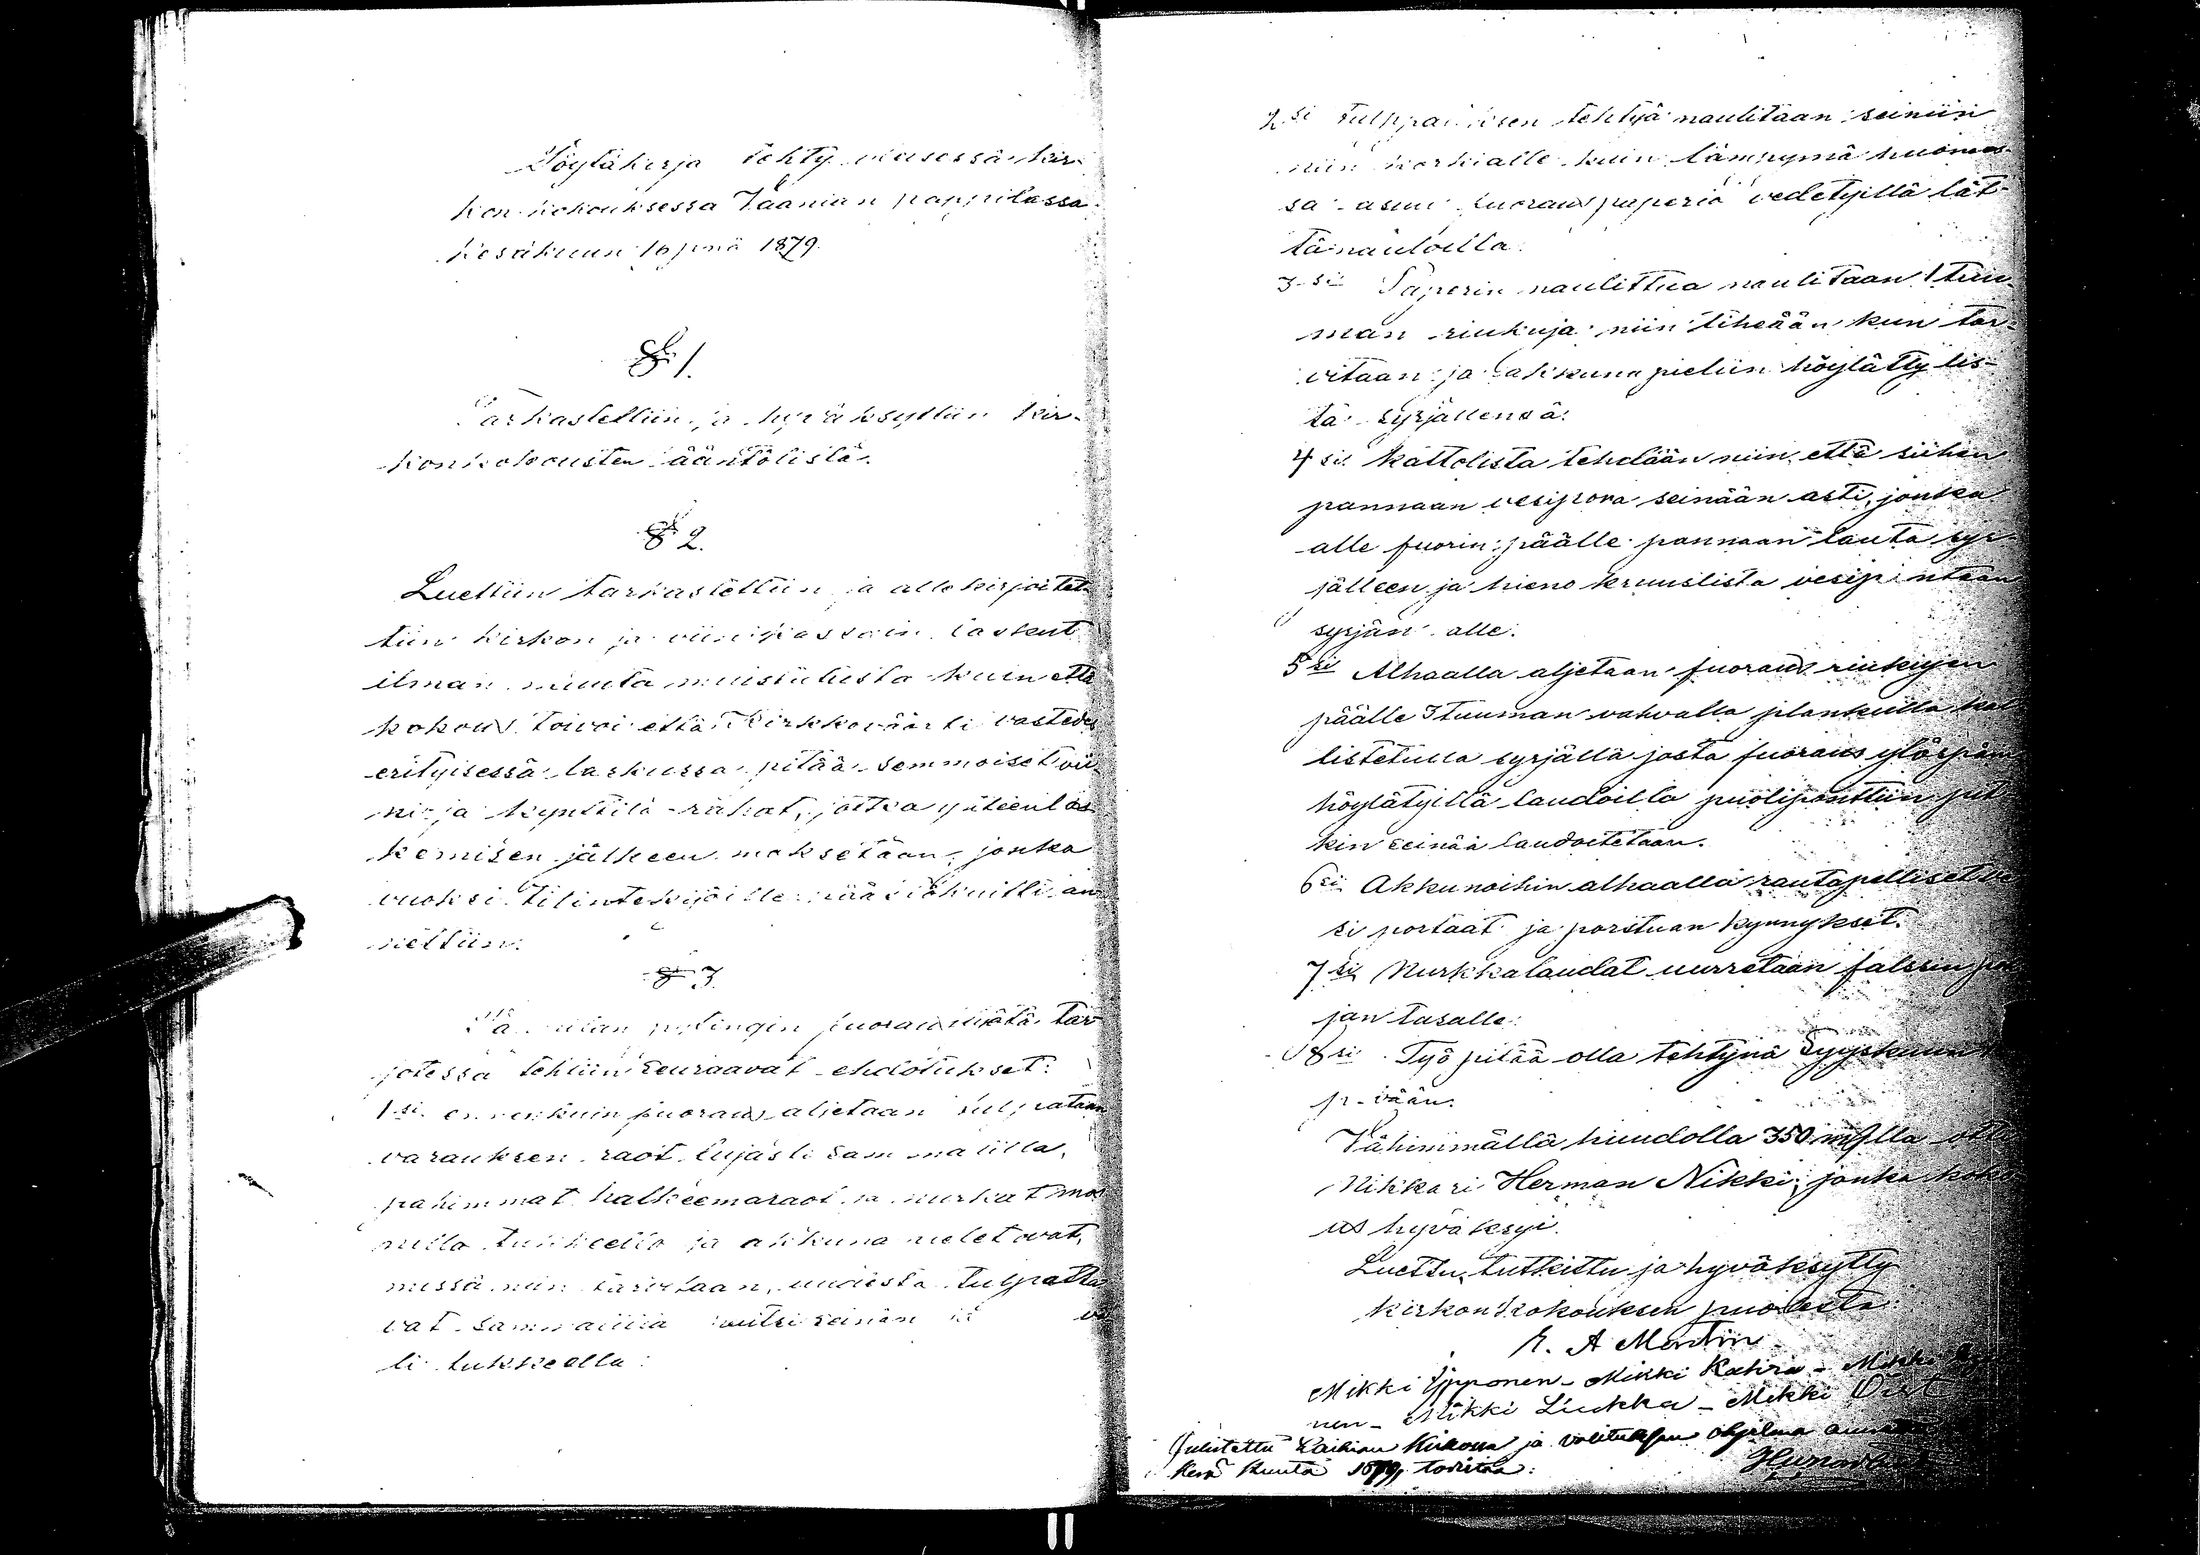 Pöytäkirja tehty yleisessä kir-
kon kokouksessa Vaanian pappilassa
Kesäkuun 16 pnä 1879.
§ 1.
Tarkastettiin ja hyväksyttiin kir-
konkokousten ääntölista.
§ 2.
Luettiin tarkastettiin ja allekirjoitet-
tiin kirkon ja viinikassain laskut
ilman muuta muistutusta kuin että
kokous toivoi että Kirkkoväärti vastedes
erityisessä laskussa pitää semmoiset vii-
ni- ja kynttilä-rahat, jotka yhteenlas-
kemisen jälkeen maksetaan, jonka
vuoksi tilintekijöille päästökuitti an-
nettiin.
§ 3.
puoraustyötä tar-
jotessa tehtiin seuraavat ehdotukset:
1si ennenkuin puoraus aljetaan tulpataan
varauksen raot lujasti sammalilla,
pahimmat halkeemaraot ja nurkat
tukkeella ja akkuna pielet ovat,
missä niin tarvitaan, uudesta tulpatta
vat sammalilla seinän
li tukkeella:
2si tulppauksen tehtyä naulitaan seiniin
niin korkialle kuin lämpymä huonees-
sa asuu puorauspaperia vedetyillä lät-
tänauloilla.
3si Paperin naulittua naulitaan 1 tuu-
man riukuja niin tiheään kun tar-
vitaan ja akkunapieliin höylätty lis-
ta syrjällensä.
4si Kattolista tehdään niin että siihen
pannaan vesipora seinään asti, jonka
alle fuorin päälle pannaan lauta syr-
jälleen ja hieno kruuslista vesipintaan
syrjän alle.
5si Alhaalla aljetaan fuoraus riukujen
päälle 3 tuuman vahvalla plankulla kal
listetulla syrjällä josta fuoraus ylöspäin
höylätyillä laudoilla puoliponttiin pit-
kin seinää laudoitetaan.
6si Akkunoihin alhaalla rautapelliset
si portaat ja porstuan kynnykset.
7si Nurkkalaudat uurretaan falssin
jan tasalle.
8si Työ pitää olla tehtynä Syyskuun
p-vään.
Vähimmällä huudolla 350 mflla otti
Nikkari Herman Nikki; jonka koko
us hyväksyi.
Luettu, tutkittu ja hyväksytty
kirkonkokouksen puolesta:
E. A Mentin
Mikki Ypponen - Mikki Katira - Mikki
nen - Mikki Liukka - Mikki
Julistettu Kirkossa ja valituksen ohjelma annettu
Kesä Kuuta 1879, todistaa: